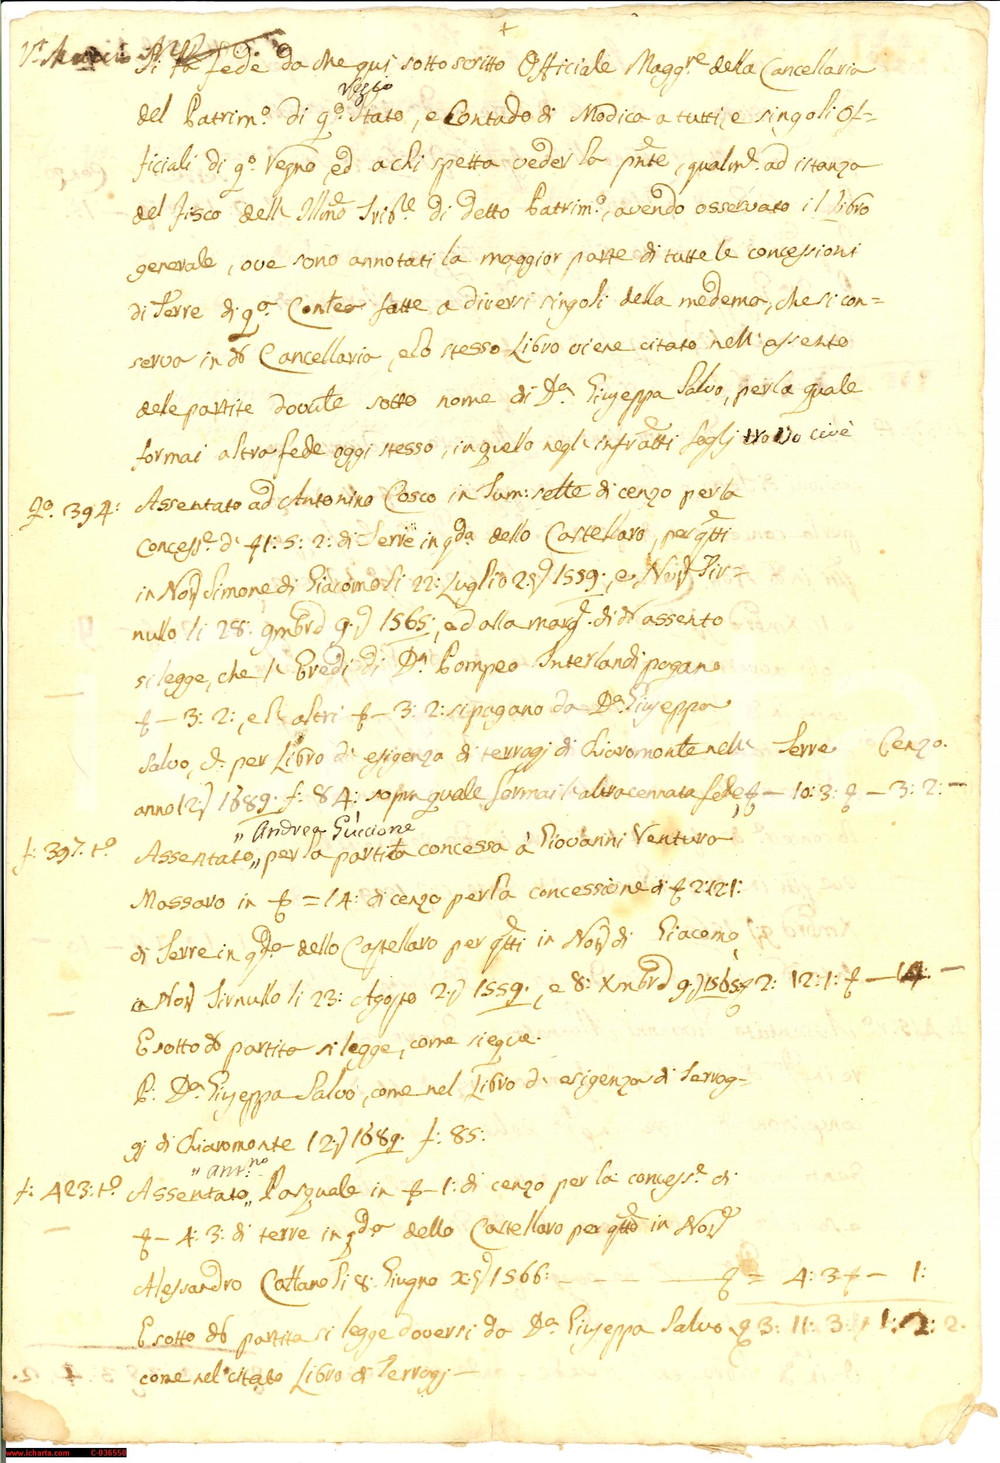 +
Si fa fede da me quì sottoscritto Officiale Magg.re della Cancellaria
del Patrim.o di q.o Regio Stato, e Contado di Modica a tutti, e singoli Of=
ficiali di q.o Regno, ed a chi spetta veder la pnte, qualm.e ad istanza
del fisco dell' Illmo Trib.le di detto Patrim.o, avendo osservato il Libro
generale, ove sono annotati la maggior parte di tutte le concessioni
di Terre di q.o Conteo fatte a diversi singoli della medema, che si con=
serva in do Cancellaria, e lo stesso Libro viene citato nell' assento
dele partite dovute sotto nome di D.a Giuseppa Salvo, per la quale
formai altra fede oggi stesso, in quello negl' infratti fogli trovo cioè
fo. 394: Assentato ad Antonino Cosco in Tum: sette di cenzo per la
concess.e di f 1: 5: 2: di Terre in q.da dello Castellaro, per atti
in Not.r Simone di Giacomo li 22: Luglio 2.a 1559., e Not.r Tir=
nullo li 28: 9mbre 9.a 1565:, ed alla marg.e di do assento
si legge, che l' Eredi di D.n Pompeo Interlandi pagano
f — 3: 2:, e l' altri f — 3: 2: si pagano da D.a Giuseppa
Salvo, per Libro di esigenza di terragi di Chiaromonte nell' Terre Cenzo.
anno 12.a 1689. f. 84: sopra quale formai l' altra cennata fede, f — 10: 3: f — 3: 2: —
" Andrea Guccione
f: 397. t.o Assentato " per la partita concessa à Giovanni Ventura
Massaro in f = 14: di cenzo per la concessione di f 2: 12: 1:
di Terre in q.da dello Castellaro per atti in Not.r di Giacomo,
e Not.r Tirnullo li 23: Agosto 2.a 1559., e 8: Xmbre 9.a 1565 f 2: 12: 1: f — 14: —
E sotto do partita si legge, come siegue.
P. D.a Giuseppa Salvo, come nel Libro di esigenza di Terrag=
gi di Chiaromonte 12.a 1689. f. 85:
" Ant.no
f: 423: t.o Assentato " Pasquale in f — 1: di cenzo per la concess.e di
f — 4: 3: di terre in q.da dello Castellaro per atto in Not.r
Alessandro Cattano li 8: Giugno x.a 1566: — — — — f = 4: 3 f — 1:
E sotto do partita si legge doversi da D.a Giuseppa Salvo f 3: 11: 3: f 1: 2: 2.
come nel citato Libro di Terragi —
www.icharta.com C-036550